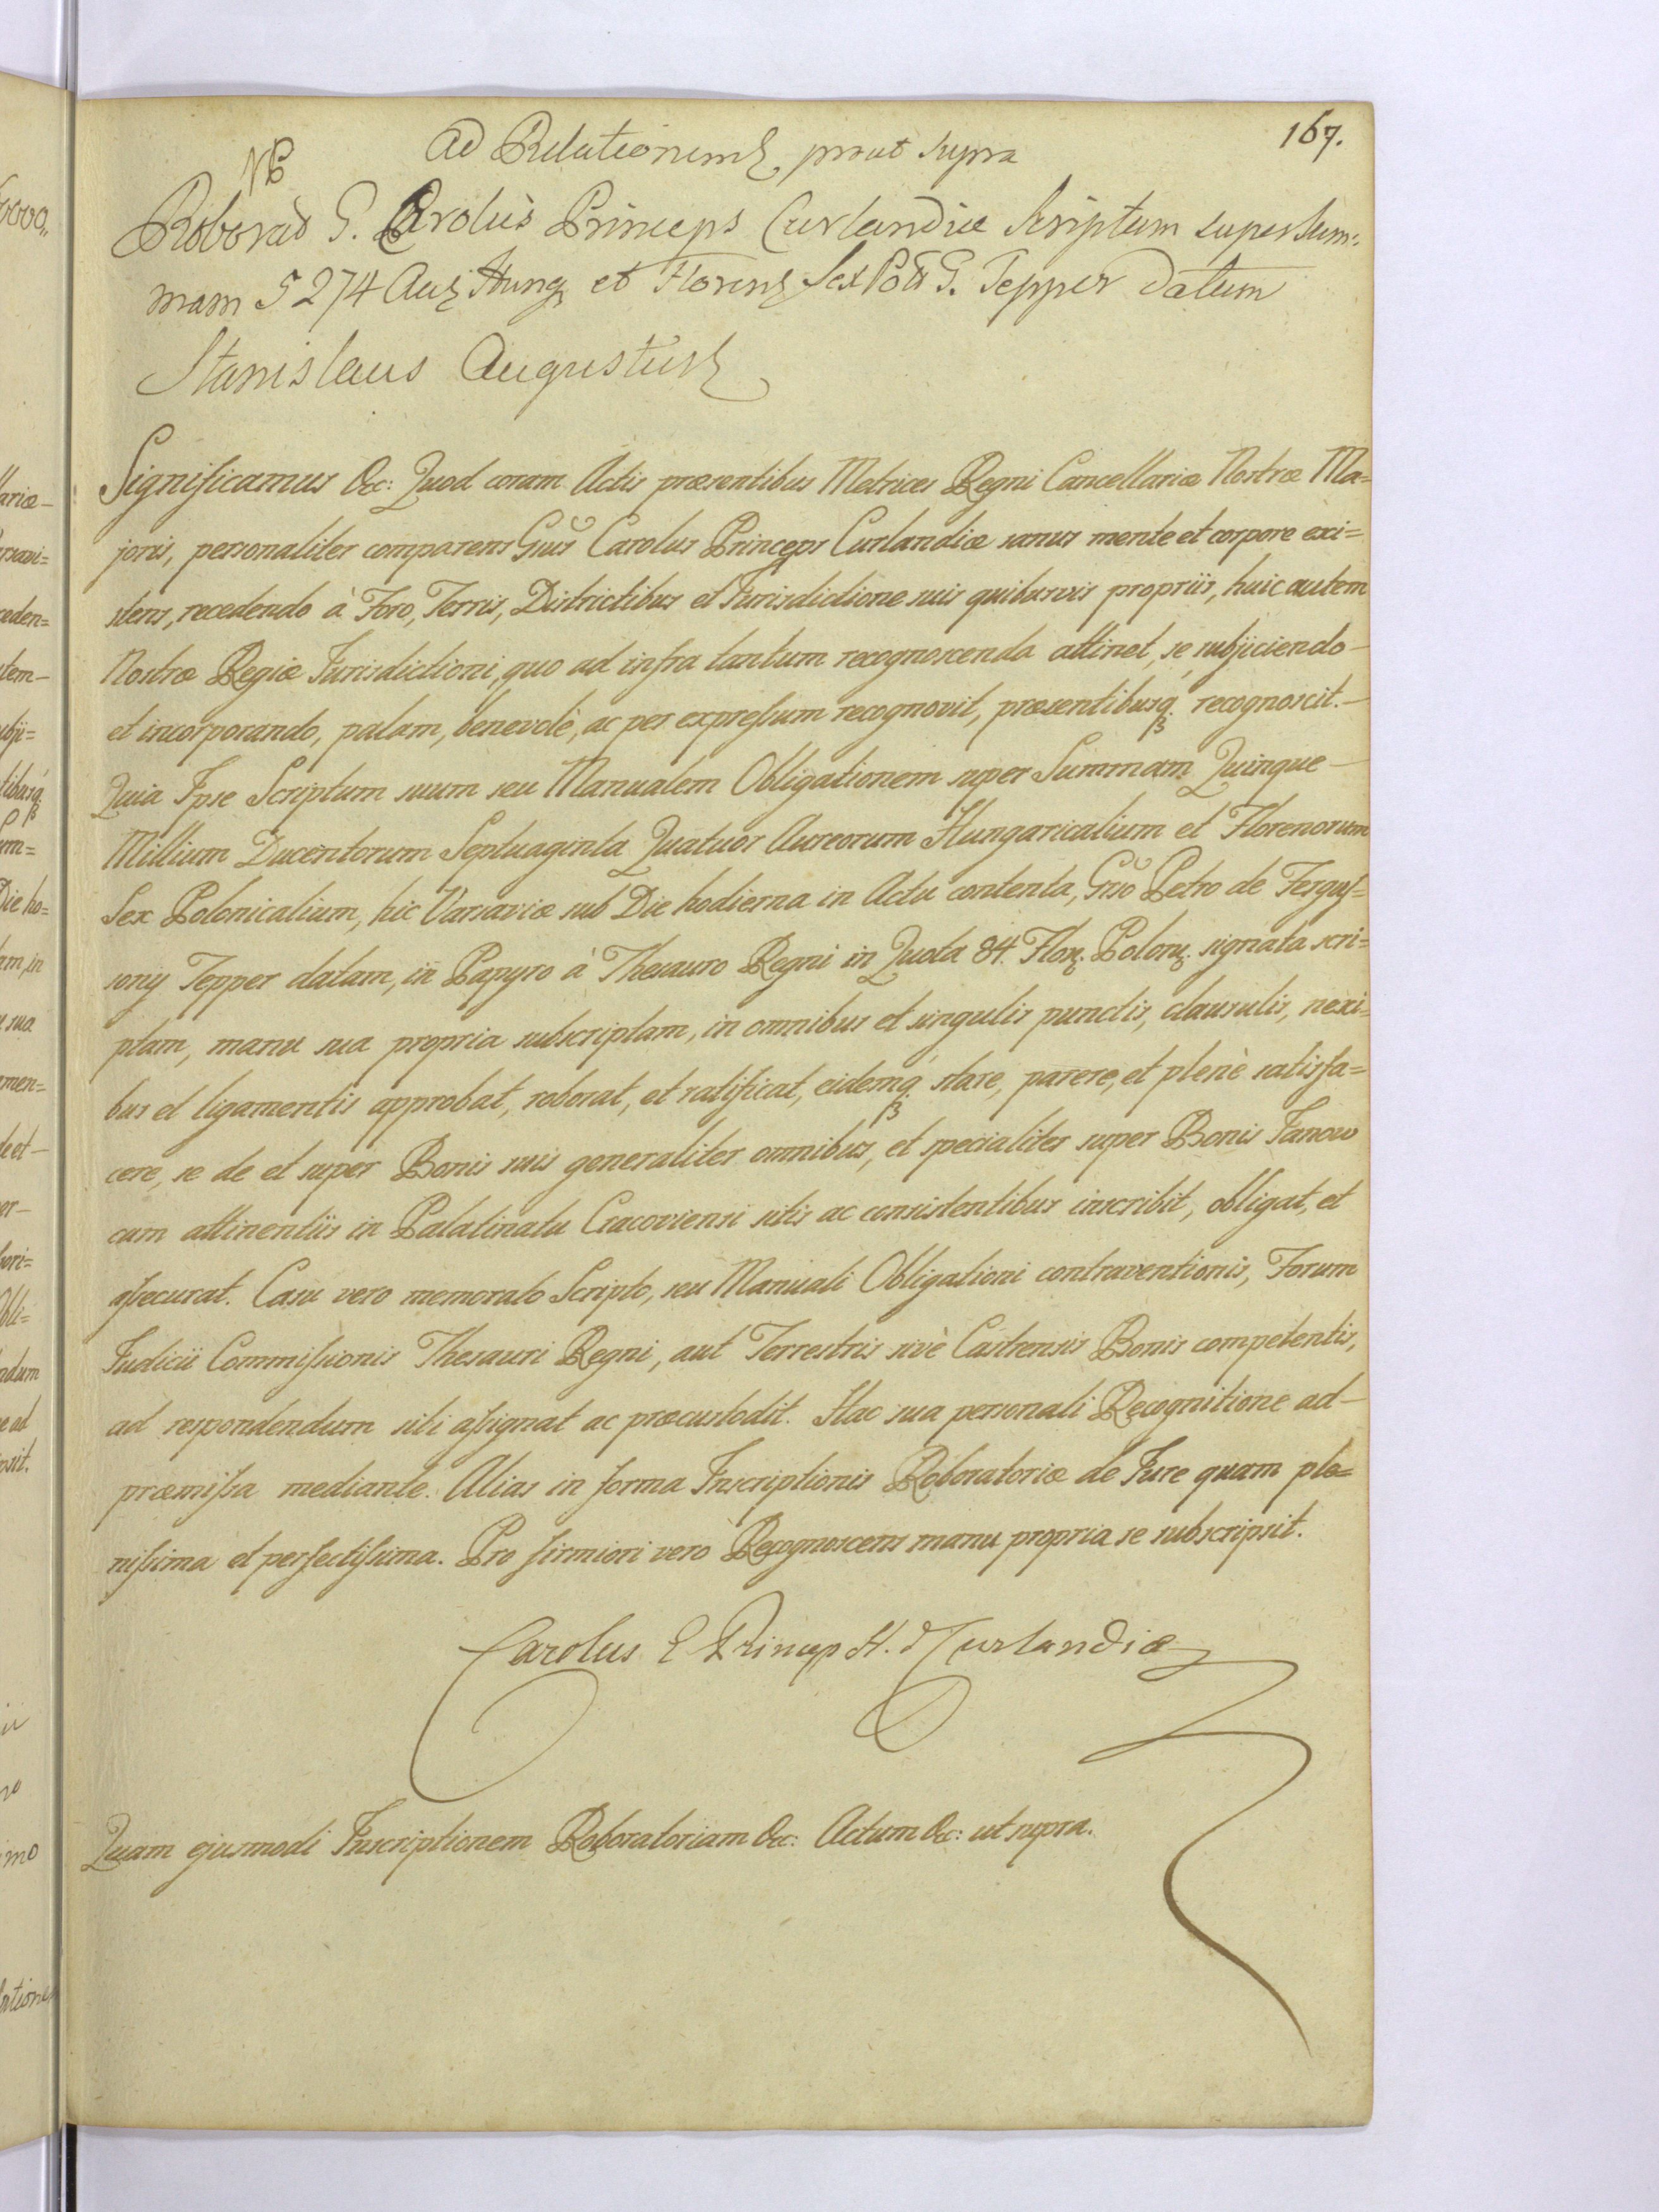 167.
Ad Relationem prout supra
NB
Roborat G. Carolus Princeps Curlandiæ Scriptum super Sum=
mam 5274 Aur Hung et Floren Sex Pol G. Tepper Datum
Stanislaus Augustus
Significamus &c: Quod coram Actis præsentibus Metrices Regni Cancellariæ Nostræ Ma=
joris, personaliter comparens Gsus Carolus Princeps Curlandiæ sanus mente et corpore exi=
stens, recedendo à Foro, Terris, Districtibus et Jurisdictione suis quibusvis propriis, huic autem
Nostræ Regiæ Jurisdictioni, quo ad infra tantum recognoscenda attinet, se subjiciendo
et incorporando, palam, benevolè, ac per expressum recognovit, præsentibusq. recognoscit.
Quia Ipse Scriptum suum seu Manualem Obligationem super Summam Quinque
Millium Ducentorum Septuaginta Quatuor Aureorum Hungaricalium et Florenorum
Sex Polonicalium, hic Varsaviæ sub Die hodierna in Actu contenta, Gso Petro de Fergus=
sony Tepper datam, in Papyro à Thesauro Regni in Quota 84. Flor. Polon. signata scri=
ptam, manu sua propria subscriptam, in omnibus et singulis punctis, clausulis, nexi=
bus et ligamentis approbat, roborat, et ratificat, eidemq. stare, parere, et plenè satisfa=
cere, se de et super Bonis suis generaliter omnibus, et specialiter super Bonis Janow
cum attinentiis in Palatinatu Cracoviensi sitis ac consistentibus inscribit, obligat, et
assecurat. Casu vero memorato Scripto, seu Manuali Obligationi contraventionis, Forum
Judicii Commissionis Thesauri Regni, aut Terrestris sivè Castrensis Bonis competentis,
ad respondendum sibi assignat ac præcustodit. Hac sua personali Recognitione ad
præmissa mediante. Alias in forma Inscriptionis Roboratoriæ de Jure quam ple=
nissima et perfectissima. Pro firmiori verò Recognoscens manu propria se subscripsit.
Carolus Princep H. d Curlandiæ
Quam ejusmodi Inscriptionem Roboratoriam &c: Actum &c: ut supra.